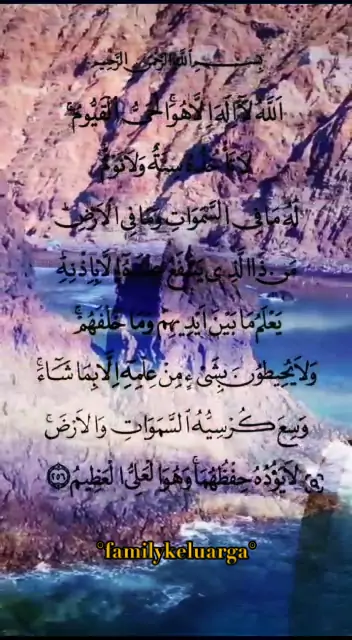 بِسْمِ اللَّهِ الرَّحْمَٰنِ الرَّحِيمِ
اَللَّهُ لَآ اِلٰهَ اِلَّا هُوَۚ اَلْحَيُّ الْقَيُّومُۚ
لَا تَأْخُذُهُ سِنَةٌ وَلَا نَوْمٌۚ
لَهُ مَا فِي السَّمٰوَاتِ وَمَا فِي الْاَرْضِۗ
مَنْ ذَا الَّذِي يَشْفَعُ عِنْدَهُٓ اِلَّا بِاِذْنِهِۚ
يَعْلَمُ مَا بَيْنَ اَيْدِيهِمْ وَمَا خَلْفَهُمْۚ
وَلَا يُحِيطُونَ بِشَيْءٍ مِنْ عِلْمِهِٓ اِلَّا بِمَا شَآءَۚ
وَسِعَ كُرْسِيُّهُ السَّمٰوَاتِ وَالْاَرْضَۚ
وَلَا يَؤُدُهُ حِفْظُهُمَاۚ وَهُوَ الْعَلِيُّ الْعَظِيمُ ﴿٢٥٥﴾
°familykeluarga°